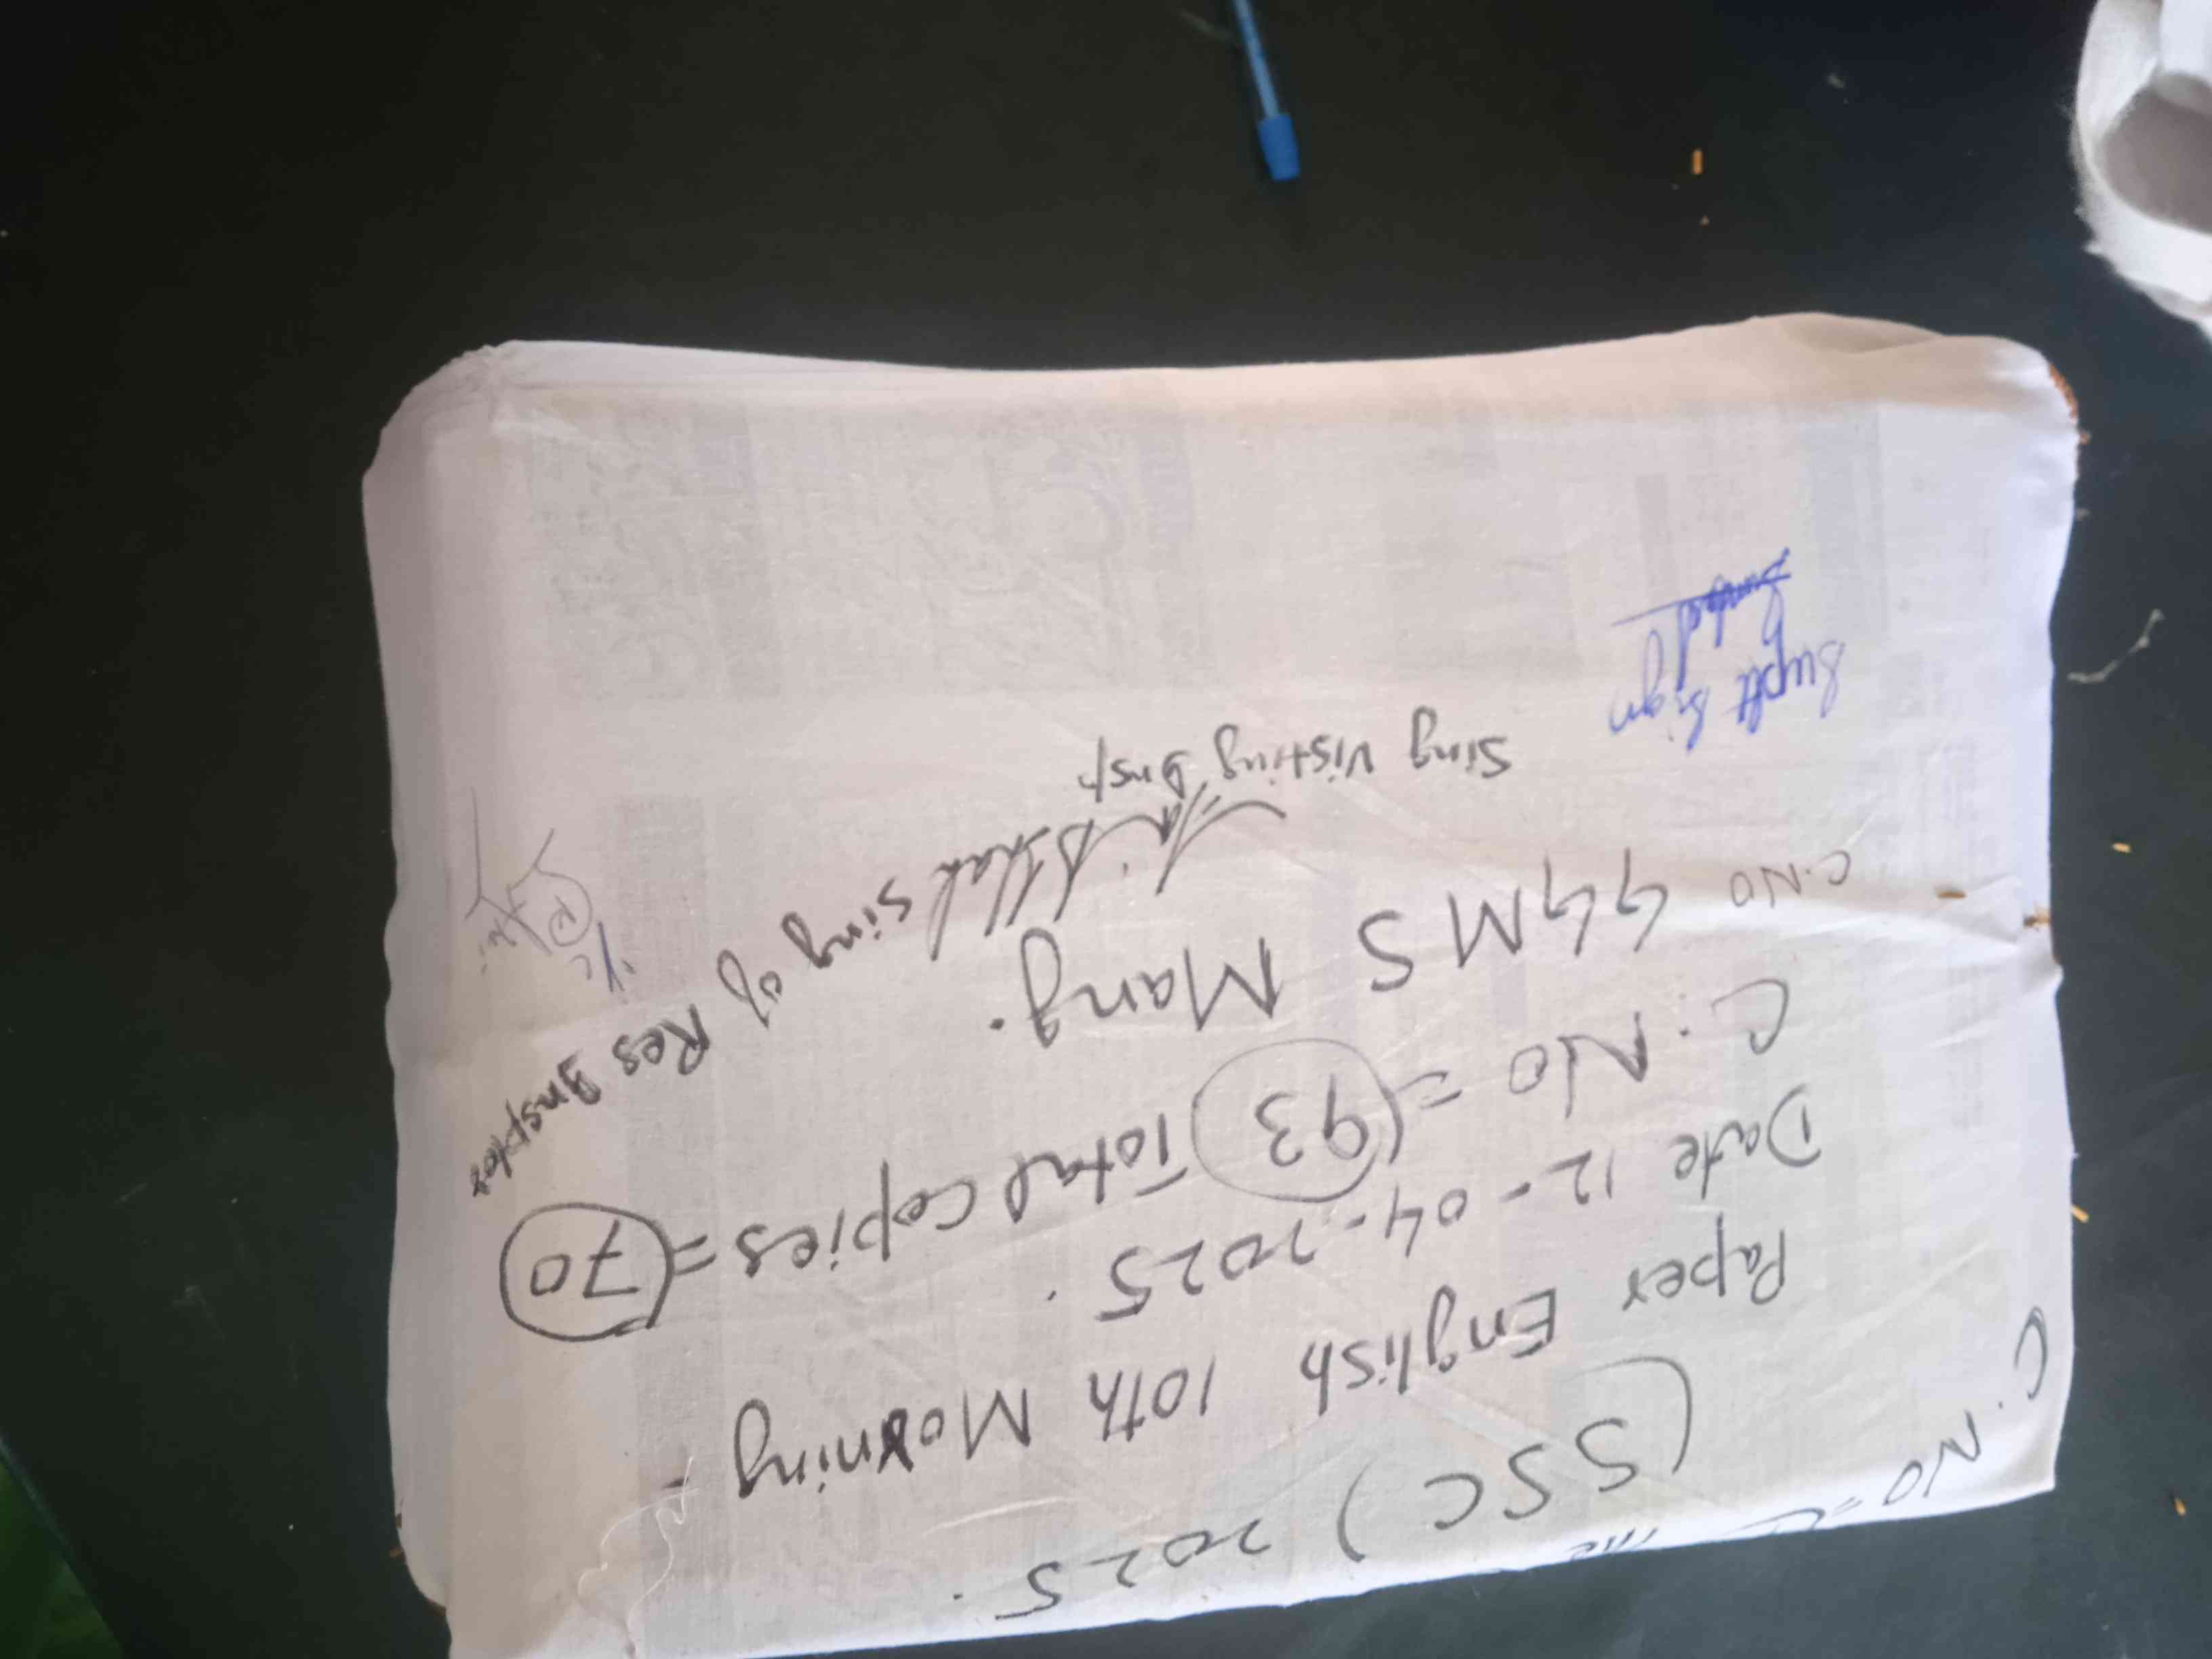 (SSC) 2025.
Paper English 10th Morning -
Date 12-04-2025.
C.No = 93 Total Copies = 70
C.No GHMS Mang.
Sing of Res Inspector
Sing Visting Insp
Suptt Sign
C.No =